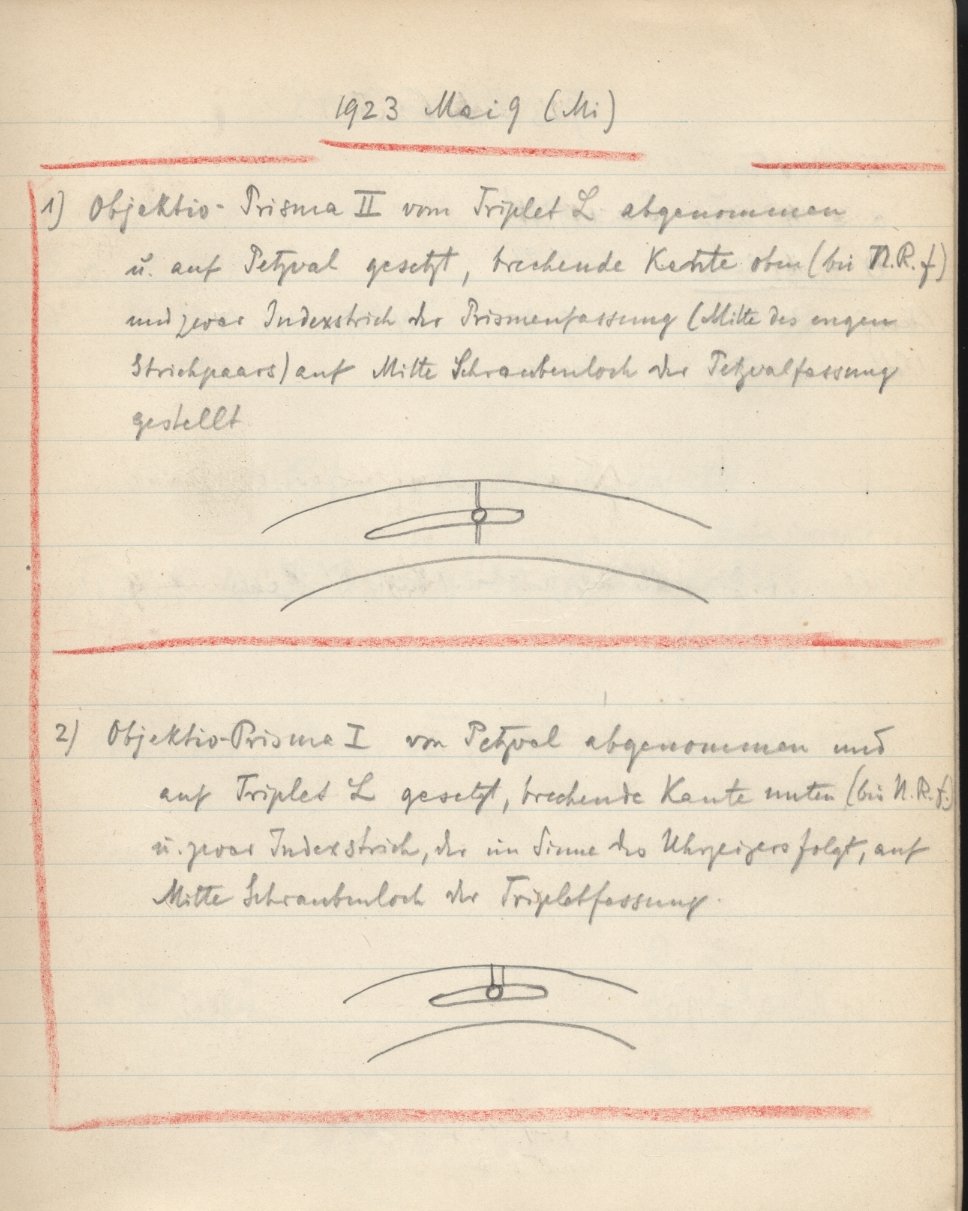 1923 Mai 9 (Mi)
1) Objektiv-Prisma II vom Triplet L abgenommen
u. auf Petzval gesetzt, brechende Kante oben (bei N.R.f)
und zwar Indexstrich der Prismenfassung (Mitte des engen
Strichpaars) auf Mitte Schraubenloch der Petzvalfassung
gestellt
2) Objektiv-Prisma I von Petzval abgenommen und
auf Triplet L gesetzt, brechende Kante unten (bei N.R.f.)
u. zwar Indexstrich, der im Sinne des Uhrzeigers folgt, auf
Mitte Schraubenloch der Tripletfassung.